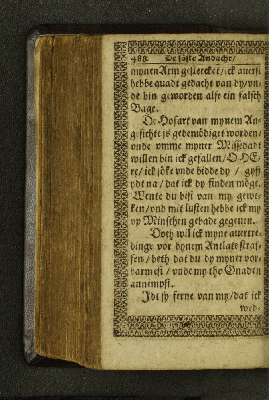 488. De söste Andacht/
mynen Arm gestercket / ick auerst
hebbe quadt gedacht van dy / vn-
de bin geworden alse ein falsch
Bage.
De Hofart van mynem An-
gesichte is gedemödiget worden/
vnde vmme myner Missedadt
willen bin ick gefallen / O HE-
re / ick söke vnde bidde dy / gyff
ydt na / dat ick dy finden möge.
Wente du bist van my gewe-
ken / vnd mit lusten hebbe ick my
vp Minschen gebade gegeuen.
Doch wil ick myne auertre-
dinge vor dynem Antlate straf-
fen / beth dat du dy myner vor-
barmest / vnde my tho Gnaden
annempst.
Idt sy ferne van my / dat ick
wed-